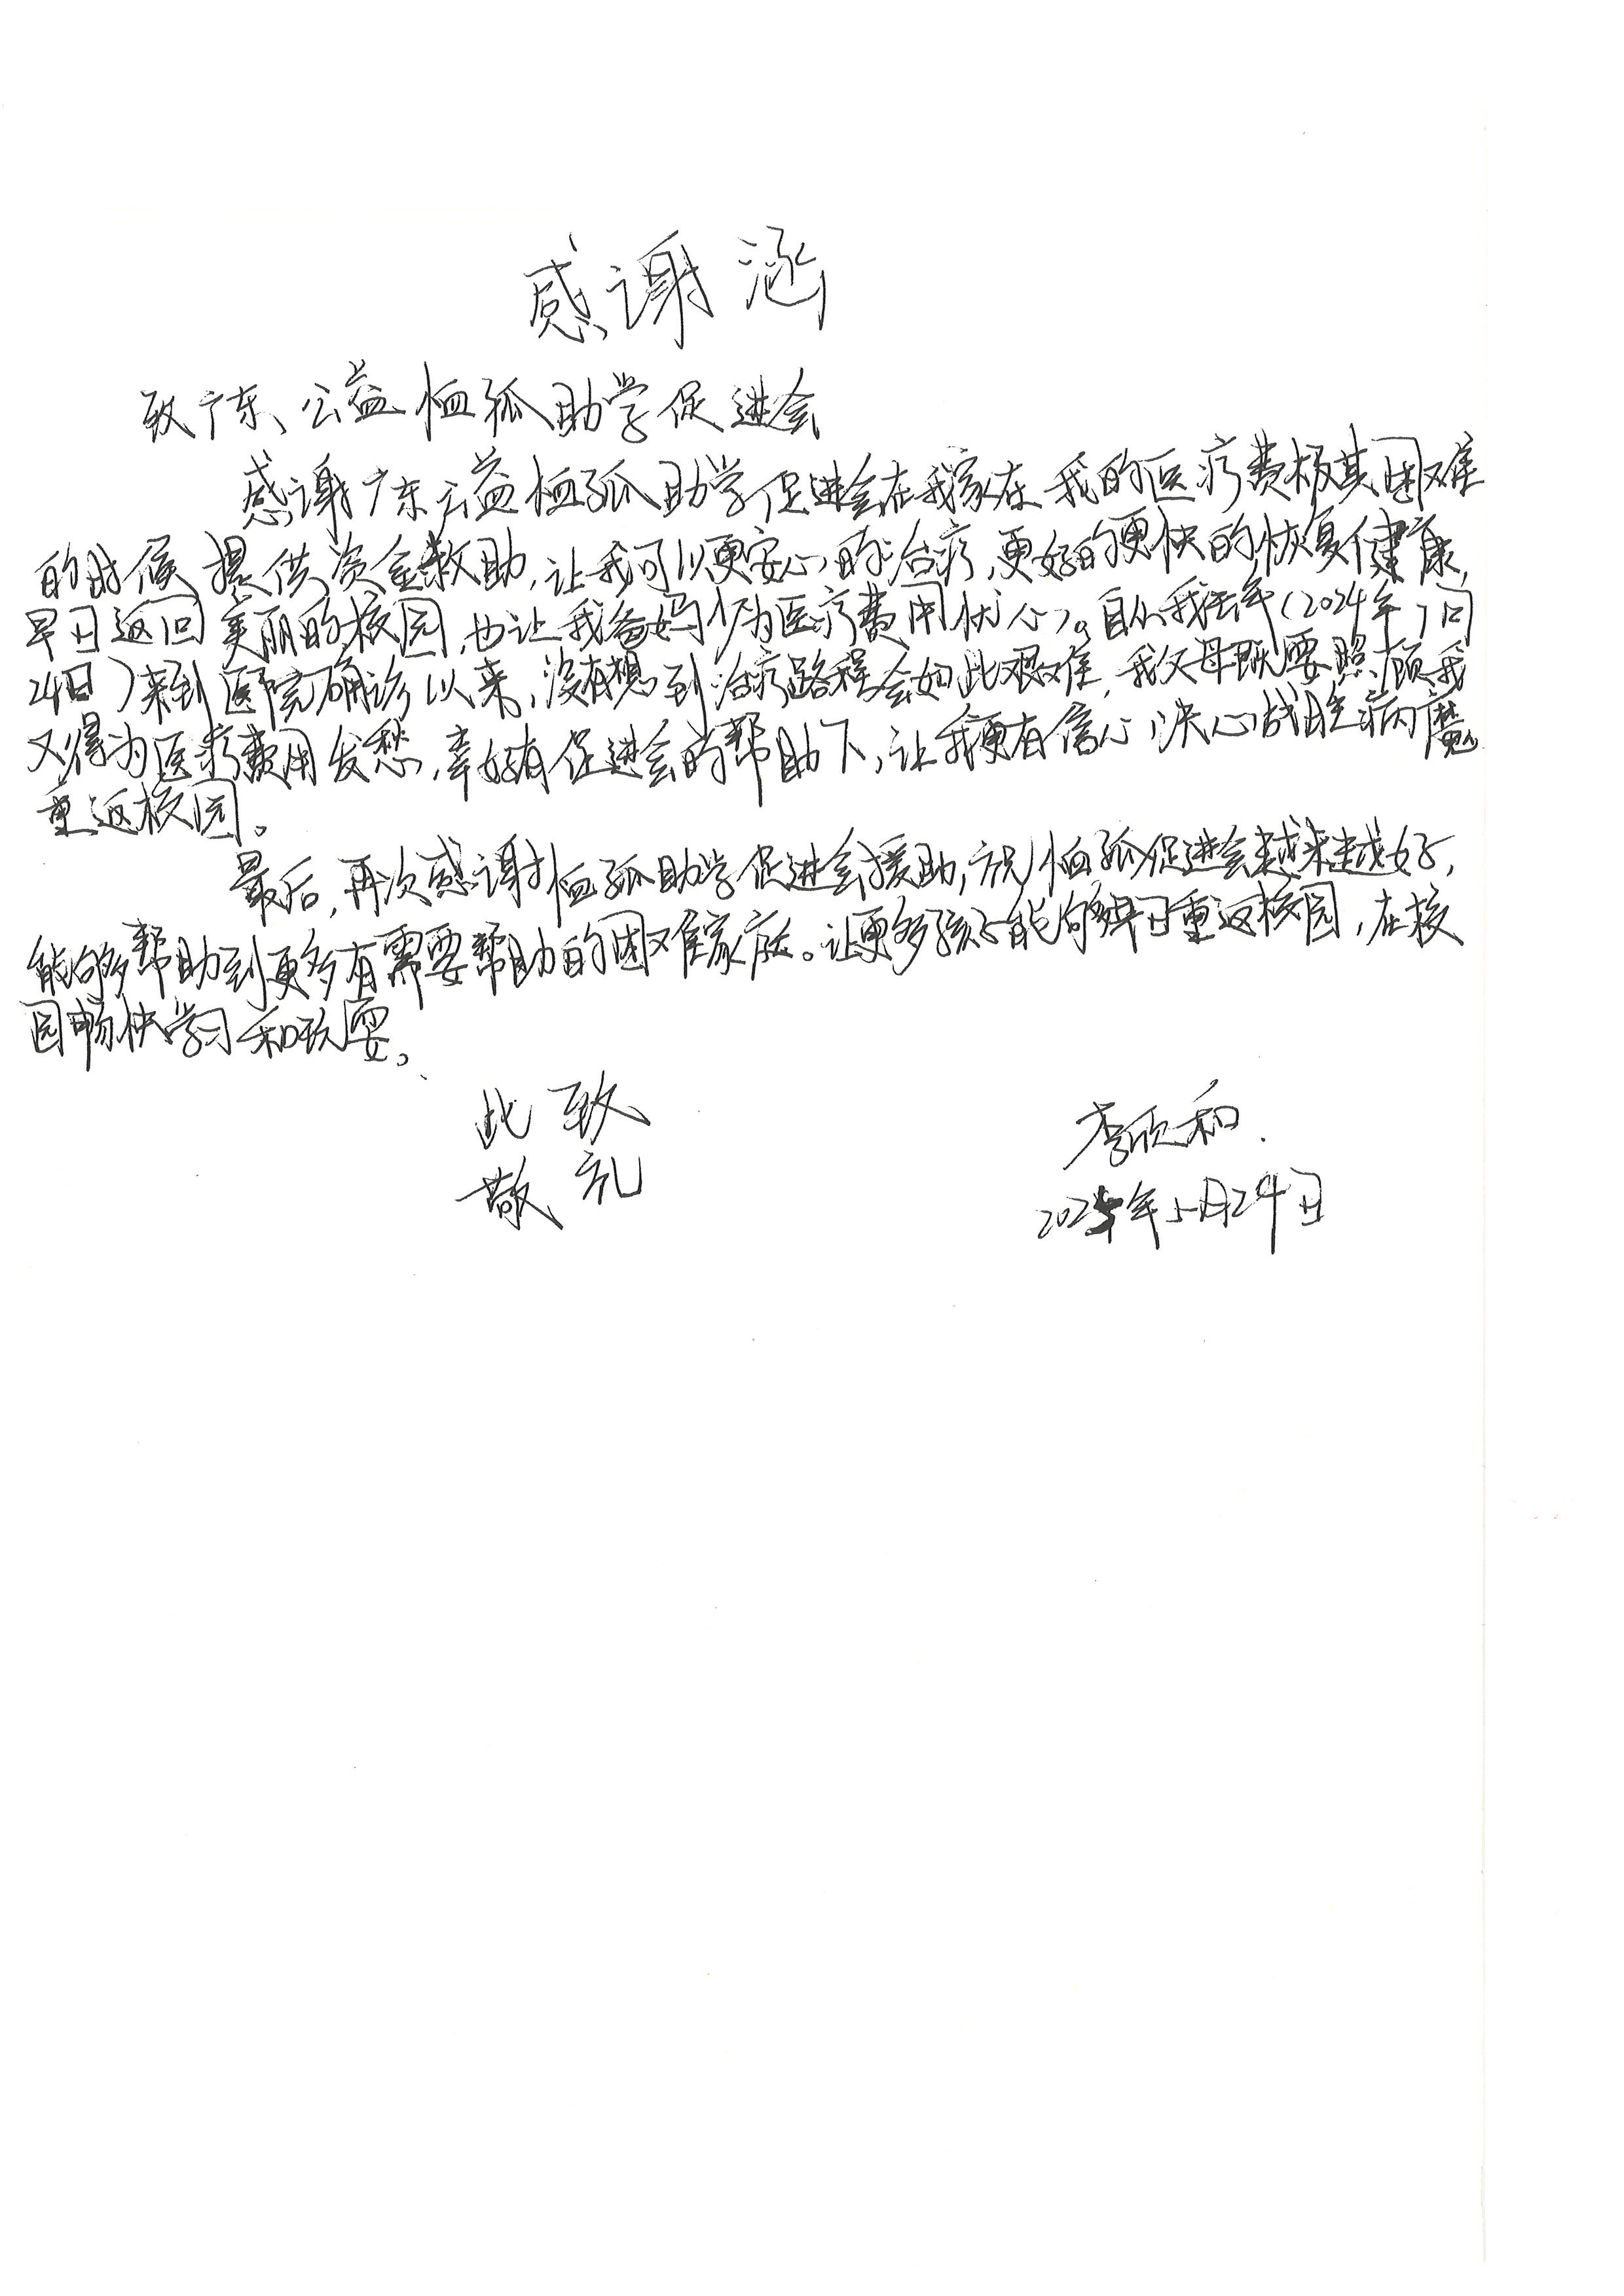 感谢涵
致广东公益恤孤助学促进会
感谢广东公益恤孤助学促进会在我家在我的医疗费极其困难
的时候提供资金救助,让我可以更安心的治疗,更好的更快的恢复健康,
早日返回美丽的校园,也让我爸妈少为医疗费用忧心。自从我去年(2024年7月
24日)来到医院确诊以来,没有想到治疗路程会如此艰难,我父母既要照顾我
又得为医疗费用发愁,幸好有促进会的帮助下,让我更有信心决心战胜病魔
重返校园。
最后,再次感谢恤孤助学促进会援助,祝恤孤促进会越来越好,
能够帮助到更多有需要帮助的困难家庭。让更多孩子能够早日重返校园,在校
园畅快学习和玩耍。
此致
敬礼
李欣和.
2025年5月24日